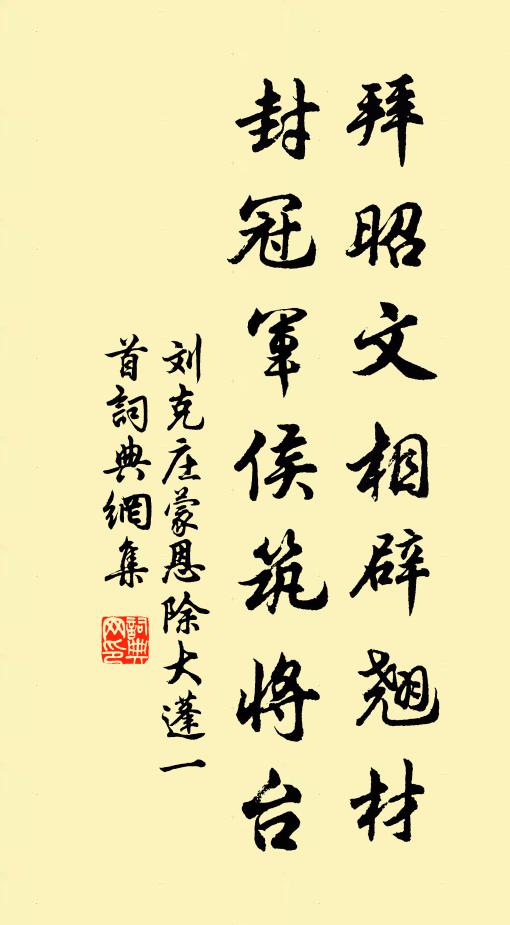 拜昭文相辟翘材
封冠軍侯筑將台
刘克庄蒙恩除大蓬一
首詞典網集
詞典
网印